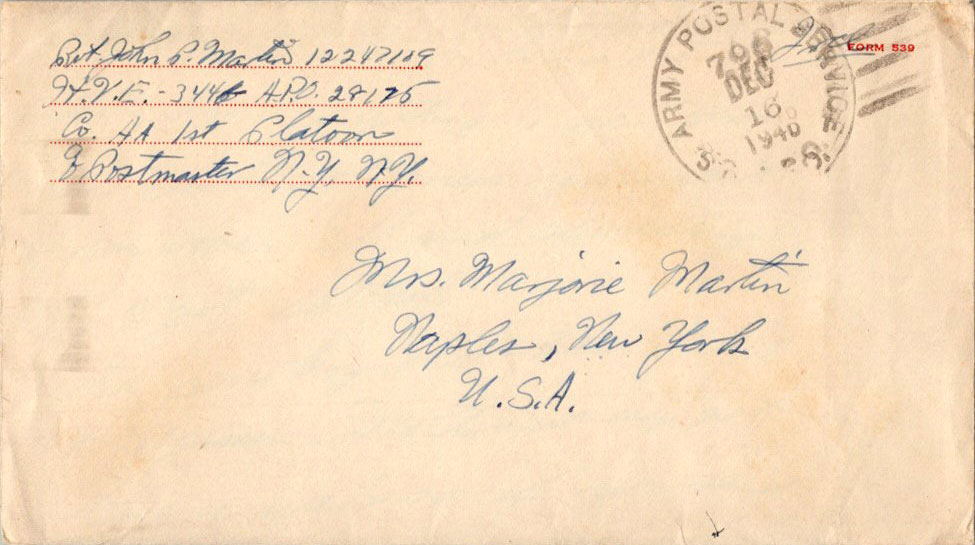 Pvt. John P. Martin 12247109
A.P.O. 28175
Co. AA 1st Platoon
Postmaster N.Y. N.Y.
ARMY POSTAL SERVICE
DEC
16
FORM 539
Mrs. Marjorie Martin
Naples, New York
U.S.A.